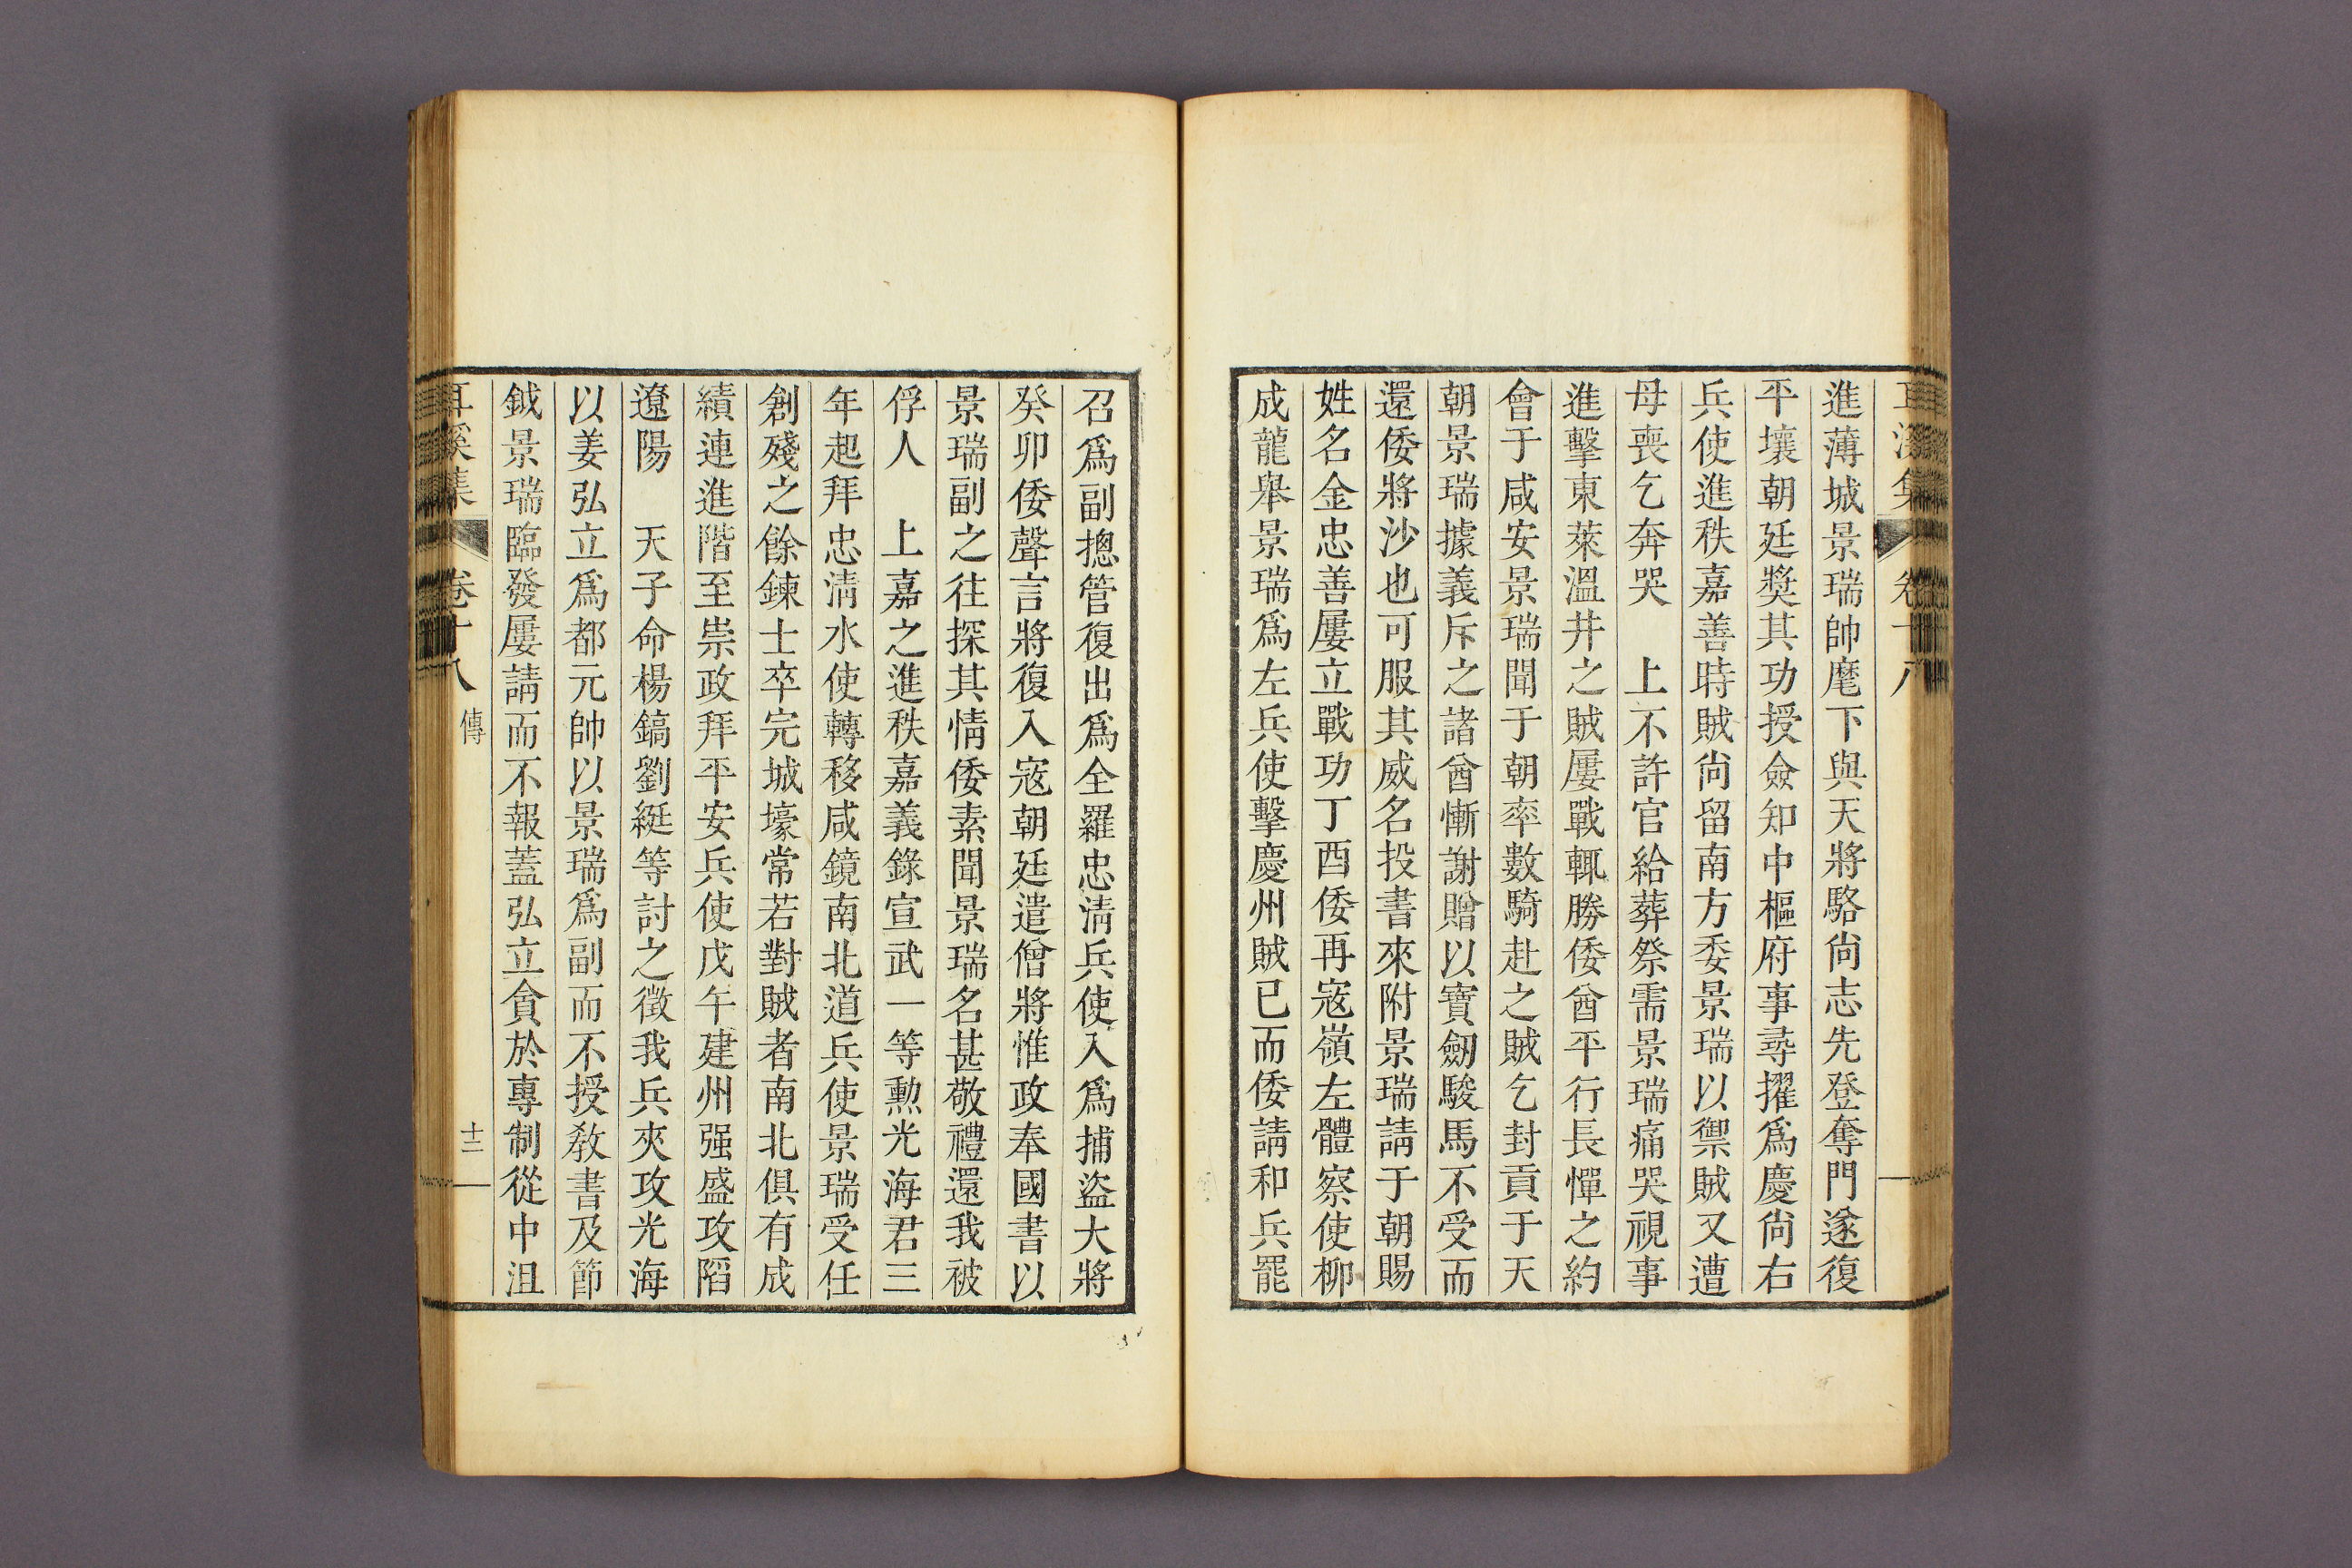 進薄城景瑞帥麾下與天將駱尙志先登奪門遂復
平壤朝廷奬其功授僉知中樞府事尋擢爲慶尙右
兵使進秩嘉善時賊尙留南方委景瑞以禦賊又遭
母喪乞奔哭　上不許官給葬祭需景瑞痛哭視事
進擊東萊溫井之賊屢戰輒勝倭酋平行長憚之約
會于咸安景瑞聞于朝率數騎赴之賊乞封貢于天
朝景瑞據義斥之諸酋慚謝贈以寶劒駿馬不受而
還倭將沙也可服其威名投書來附景瑞請于朝賜
姓名金忠善屢立戰功丁酉倭再寇嶺左體察使柳
成龍舉景瑞爲左兵使擊慶州賊已而倭請和兵罷
召爲副摠管復出爲全羅忠淸兵使入爲捕盜大將
癸卯倭聲言將復入寇朝廷遣僧將惟政奉國書以
景瑞副之往探其情倭素聞景瑞名甚敬禮還我被
俘人　上嘉之進秩嘉義錄宣武一等勲光海君三
年起拜忠淸水使轉移咸鏡南北道兵使景瑞受任
創殘之餘鍊士卒完城壕常若對賊者南北俱有成
績連進階至崇政拜平安兵使戊午建州强盛攻陷
遼陽　天子命楊鎬劉綎等討之徵我兵夾攻光海
以姜弘立爲都元帥以景瑞爲副而不授敎書及節
鉞景瑞臨發屢請而不報蓋弘立貪於專制從中沮
耳溪集　卷十八　傳　十二